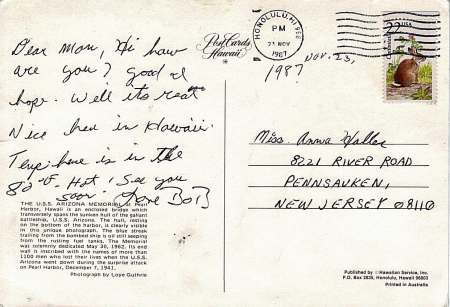 Dear Mom, Hi how
are you? good I
hope. Well its real
Nice here in Hawaii.
Temp here is in the
Hot! See you
soon. Love BoB
THE U.S.S. ARIZONA MEMORIAL
Harbor, Hawaii is an enclosed bridge which
transversely spans the sunken hull of the gallant
battleship, U.S.S. Arizona. The hull, resting
on the bottom of the harbor, is clearly visible
in this unique photograph. The blue streak
trailing from the bombed ship is oil still seeping
from the rusting fuel tanks. The Memorial
was solemnly dedicated May 30, 1962. Its end
wall is inscribed with the names of more than
1100 men who lost their lives when the U.S.S.
Arizona went down during the surprise attack
on Pearl Harbor, December 7, 1941.
Photograph by Loye Guthrie
Post Cards
Hawaii
HONOLULU, HI
PM
23 NOV
1987
22 USA
Nov. 23,
1987
Miss. Anna Haller
8221 RIVER ROAD
PENNSAUKEN,
NEW JERSEY 08110
Published by : Hawaiian Service, Inc.
P.O. Box 2835, Honolulu, Hawaii 96803
Printed in Australia